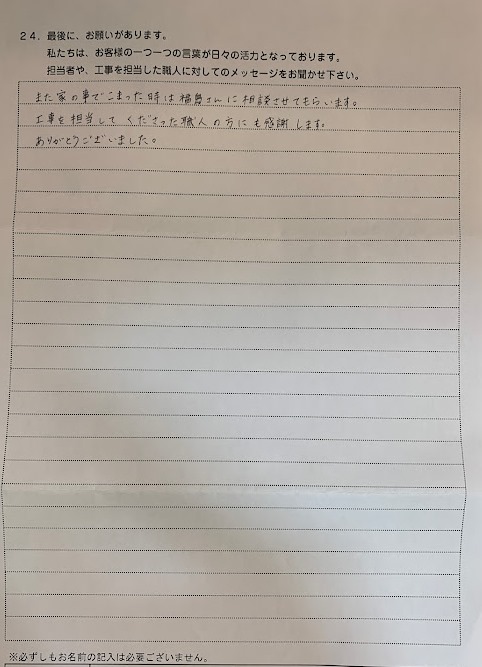 24. 最後に、お願いがあります。
私たちは、お客様の一つ一つの言葉が日々の活力となっております。
担当者や、工事を担当した職人に対してのメッセージをお聞かせ下さい。
また家の事でこまった時は福島さんに相談させてもらいます。
工事を担当してくださった職人の方にも感謝します。
ありがとうございました。
※必ずしもお名前の記入は必要ございません。